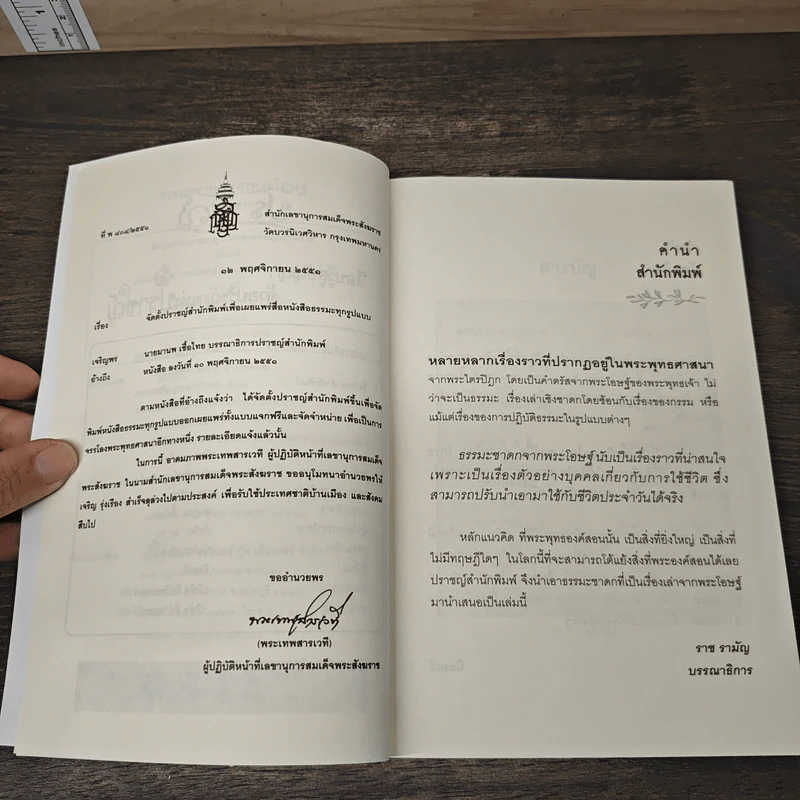 สำนักเลขานุการสมเด็จพระสังฆราช
ที่ พ ๔๐๘/๒๕๕๑
วัดบวรนิเวศวิหาร กรุงเทพมหานคร
๑๒ พฤศจิกายน ๒๕๕๑
เรื่อง จัดตั้งปราชญ์สำนักพิมพ์เพื่อเผยแพร่สื่อหนังสือธรรมะทุกรูปแบบ
เจริญพร นายมานพ เชื้อไทย บรรณาธิการปราชญ์สำนักพิมพ์
อ้างถึง หนังสือ ลงวันที่ ๑๐ พฤศจิกายน ๒๕๕๑
ตามหนังสือที่อ้างถึงแจ้งว่า ได้จัดตั้งปราชญ์สำนักพิมพ์ขึ้นเพื่อจัด
พิมพ์หนังสือธรรมะทุกรูปแบบออกเผยแพร่ทั้งแบบแจกฟรีและจัดจำหน่าย เพื่อเป็นการ
จรรโลงพระพุทธศาสนาอีกทางหนึ่ง รายละเอียดแจ้งแล้วนั้น
ในการนี้ อาตมภาพพระเทพสารเวที ผู้ปฏิบัติหน้าที่เลขานุการสมเด็จ
พระสังฆราช ในนามสำนักเลขานุการสมเด็จพระสังฆราช ขออนุโมทนาอำนวยพรให้
เจริญ รุ่งเรือง สำเร็จลุล่วงไปตามประสงค์ เพื่อรับใช้ประเทศชาติบ้านเมือง และสังคม
สืบไป
ขออำนวยพร
พระเทพสารเวที
(พระเทพสารเวที)
ผู้ปฏิบัติหน้าที่เลขานุการสมเด็จพระสังฆราช
คำนำ
สำนักพิมพ์
หลายหลากเรื่องราวที่ปรากฏอยู่ในพระพุทธศาสนา
จากพระไตรปิฎก โดยเป็นคำตรัสจากพระโอษฐ์ของพระพุทธเจ้า ไม่
ว่าจะเป็นธรรมะ เรื่องเล่าเชิงชาดกโดยซ้อนกับเรื่องของกรรม หรือ
แม้แต่เรื่องของการปฏิบัติธรรมะในรูปแบบต่างๆ
ธรรมะชาดกจากพระโอษฐ์ นับเป็นเรื่องราวที่น่าสนใจ
เพราะเป็นเรื่องตัวอย่างบุคคลเกี่ยวกับการใช้ชีวิต ซึ่ง
สามารถปรับนำเอามาใช้กับชีวิตประจำวันได้จริง
หลักแนวคิด ที่พระพุทธองค์สอนนั้น เป็นสิ่งที่ยิ่งใหญ่ เป็นสิ่งที่
ไม่มีทฤษฎีใดๆ ในโลกนี้ที่จะสามารถโต้แย้งสิ่งที่พระองค์สอนได้เลย
ปราชญ์สำนักพิมพ์ จึงนำเอาธรรมะชาดกที่เป็นเรื่องเล่าจากพระโอษฐ์
มานำเสนอเป็นเล่มนี้
ราช รามัญ
บรรณาธิการ